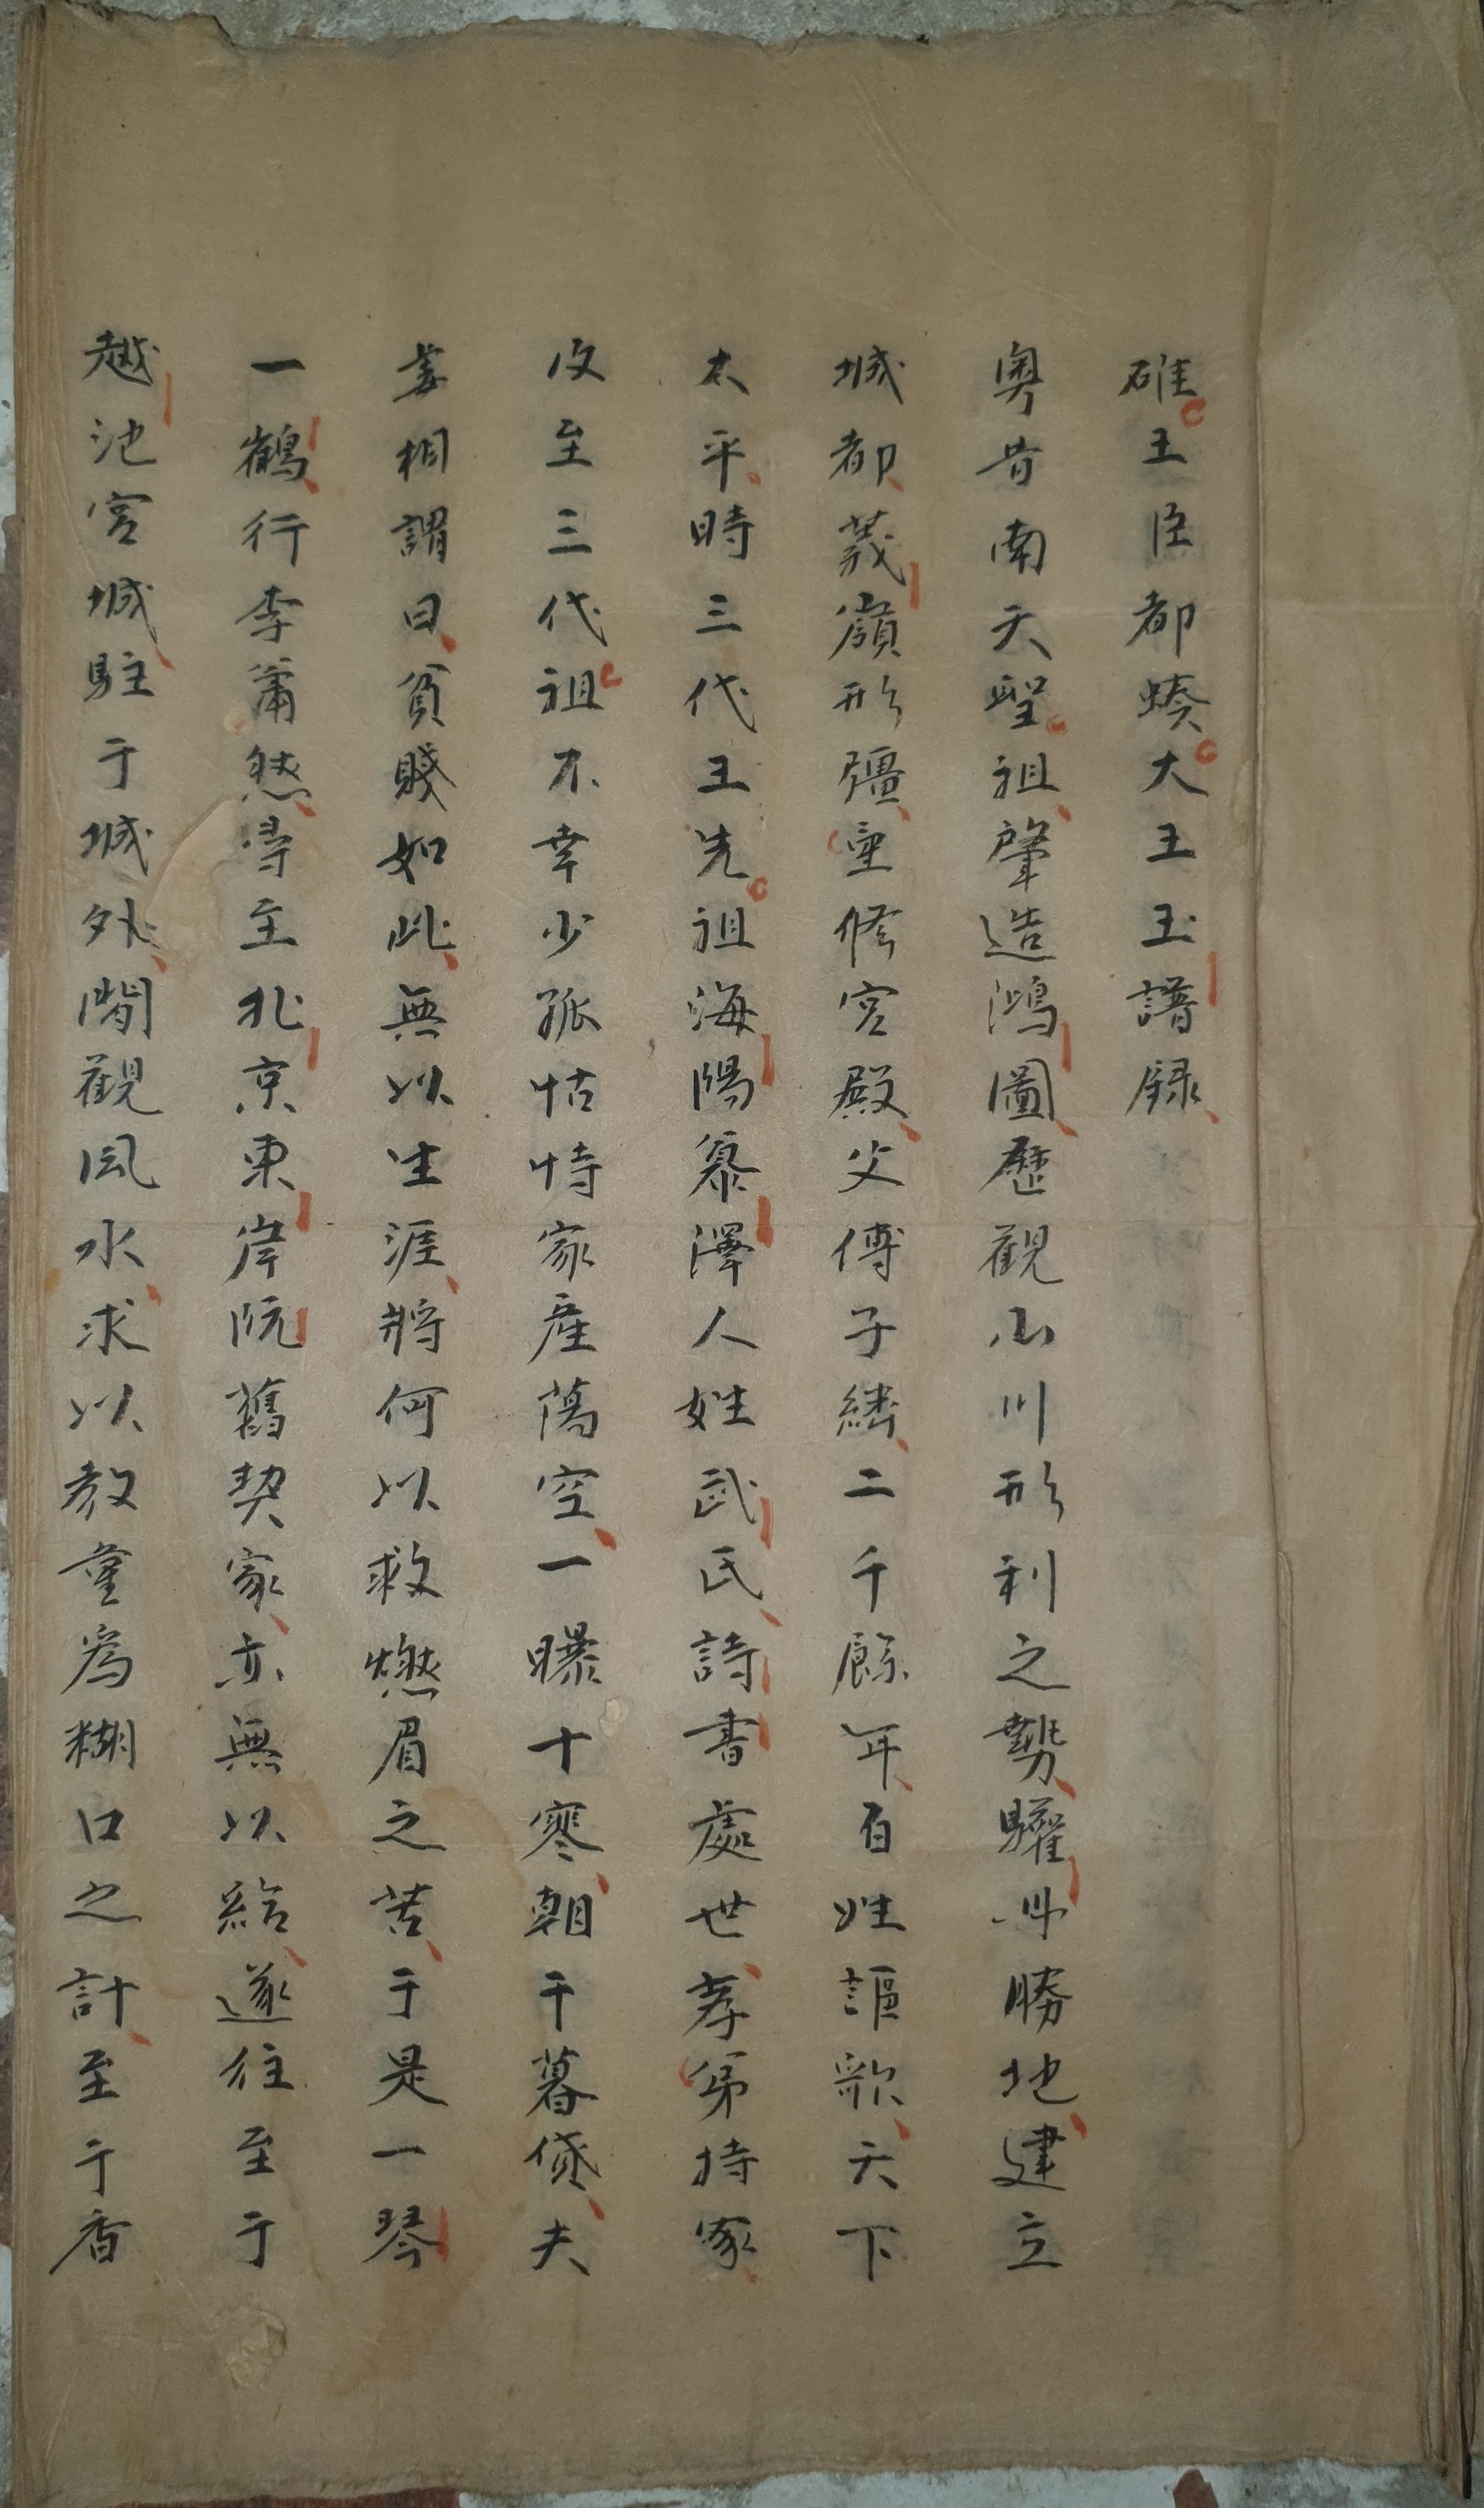 碓王臣都蝾大王玉譜録
奥昔南天聖祖肇造鴻圖歷觀山川形利之勢驩州勝地建立
城都䒾嶺形彊重修宮殿父傳子継二千餘年百姓謳歌天下
太平時三代王先祖海陽篆澤人姓武氏詩書處世孝弟持家
改至三代祖不幸少孤怙恃家産蕩空一曝十寒朝干暮貸夫
妻相謂曰貧賤如此無以生涯將何以救燃眉之苦于是一琴
一鶴行李蕭然尋主北京東岸阮舊契家亦無以給遂徃至于
越池宮城駐于城外閒觀風水求以教童爲糊口之計至于香